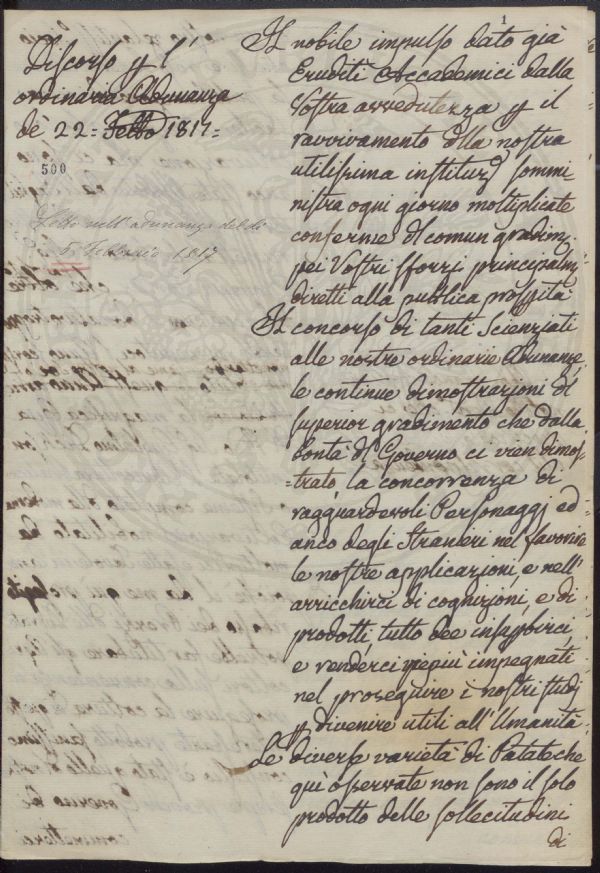 1
Discorso p l'
ordinaria Adunanza
dè 22= Febbo 1817=
500
Letto nell'adunanza del dì
5. Febbraio 1817
Il nobile impulso dato già
Eruditi Accademici dalla
Vostra avvedutezza p il
ravvivamento dlla nostra
utilissima instituz sommi
nistra ogni giorno moltiplicate
conferme dl comun gradim.
pei Vostri sforzi principalm
diretti alla publica prosptà
Il concorso di tanti Scienziati
alle nostre ordinarie Adunanze,
le continue dimostrazioni di
superior gradimento che dalla
bontà dl Governo ci vien dimos=
=trato, la concorrenza di
ragguardevoli Personaggj ed
anco degli Stranieri nel favorire
le nostre applicazioni, e nell'
arricchirci di cognizioni, e di
prodotti, tutto dee
e renderci vepiù impegnati
nel proseguire i nostri studj
p divenire utili all'Umanità.
Le diverse varietà di Patate che
quì osservate non sono il solo
prodotto delle sollecitudini
di